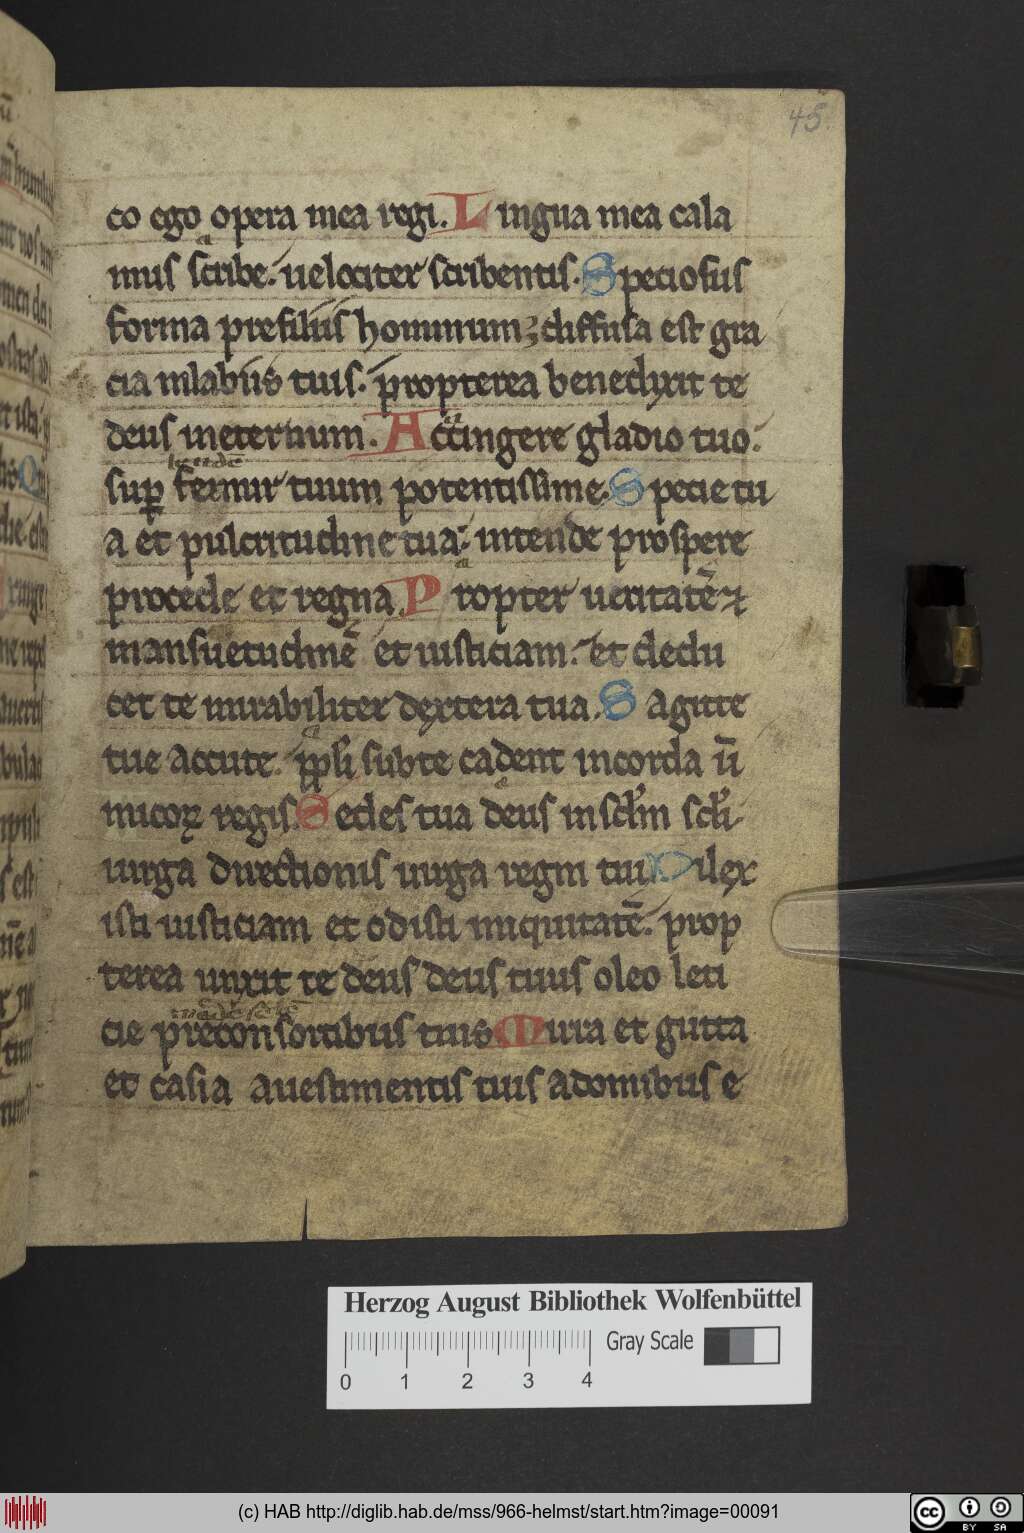 45.
co ego opera mea regi. Lingua mea cala
mus scribe. uelociter scribentis. Speciosus
forma prefiliis hominum; diffusa est gra
cia inlabiis tuis. propterea benedixit te
deus ineternum. Accingere gladio tuo.
sup femur tuum potentissime. Specie tu
a et pulcritudine tua: intende prospere
procede et regna Propter ueritatē et
mansuetudinē et iusticiam. et dedu
cet te mirabiliter dextera tua. Sagitte
tue accute. ppl'i subte cadent incorda in
imicor regis. Sedes tua deus insclm scli.
uirga directionis uirga regni tui Dilex
isti iusticiam et odisti iniquitatē. prop
terea unxit te deus deus tuus oleo leti
cie preconsortibus tuis Mirra et gutta
et casia auestimentis tuis adomibus e
Herzog August Bibliothek Wolfenbüttel
Gray Scale
0 1 2 3 4
(c) HAB http://diglib.hab.de/mss/966-helmst/start.htm?image=00091
cc BY SA